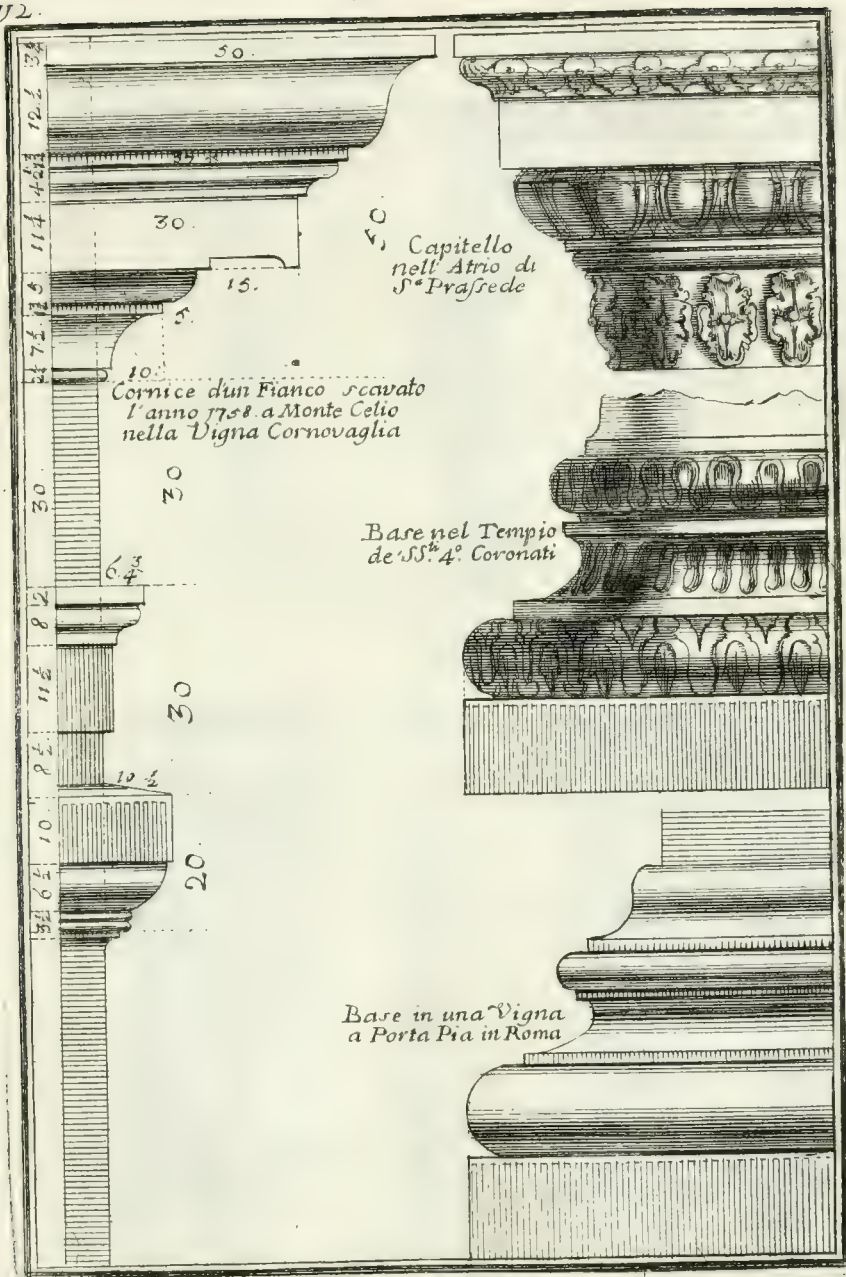 50.
30.
15.
50
Capitello
nell' Atrio di
Sᵃ Prassede
10.
Cornice d'un Fianco scavato
l'anno 1758. a Monte Celio
nella Vigna Cornovaglia
30
30
Base nel Tempio
de SS.ᵗⁱ 4º. Coronati
6 3/4
2
8
11 1/2
30
8 1/2
10 1/2
10
20
6 1/2
Base in una Vigna
a Porta Pia in Roma